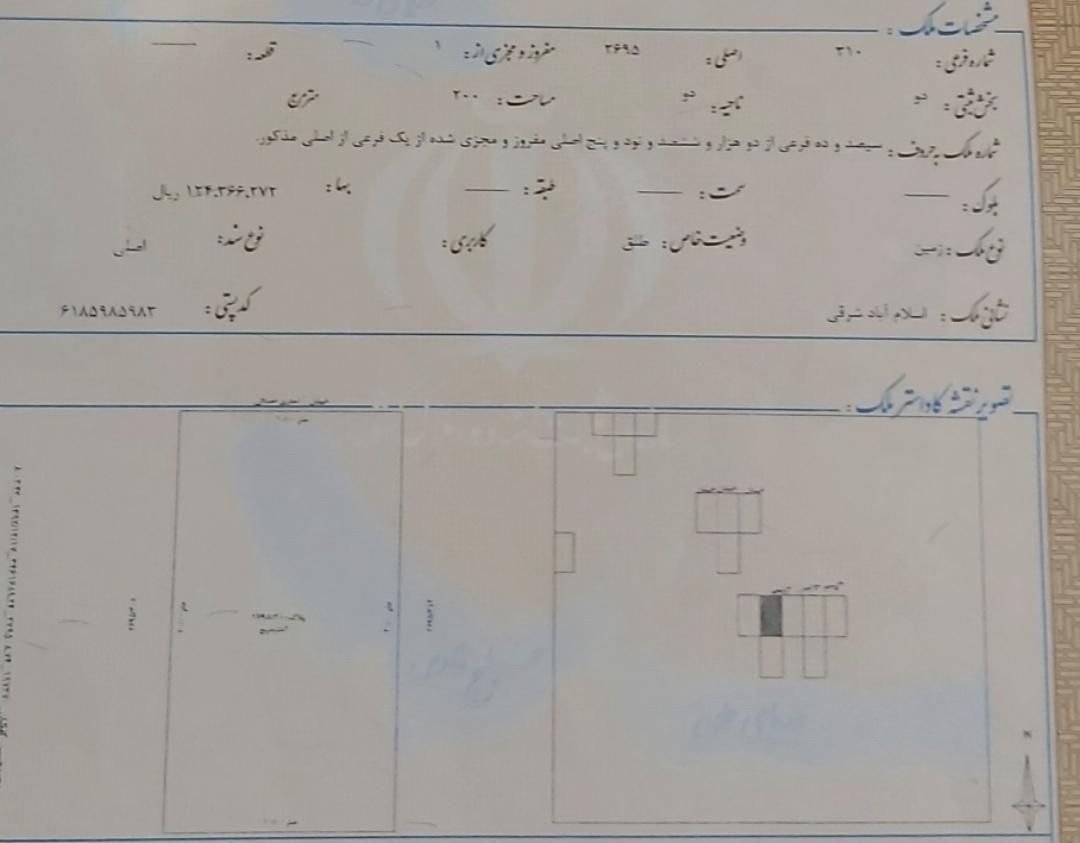 مشخصات ملک :
شماره فرعی : ۳۱۰ اصلی : ۲۶۹۵ مفروز و مجزی از : ۱ قطعه :
بخش ثبتی : دو ناحیه : دو مساحت : ۲۰۰ مترمربع
شماره ملک به حروف : سیصد و ده فرعی از دو هزار و ششصد و نود و پنج اصلی مفروز و مجزی شده از یک فرعی از اصلی مذکور.
بلوک : سمت : طبقه : بها : ۱۲۴,۳۶۶,۲۷۲ ریال
نوع ملک : زمین وضعیت خاص : طلق کاربری : نوع سند : اصلی
نشانی ملک : اسلام آباد شرقی کد پستی : ۶۱۸۵۹۸۵۹۸۳
تصویر نقشه کاداستر ملک :
N